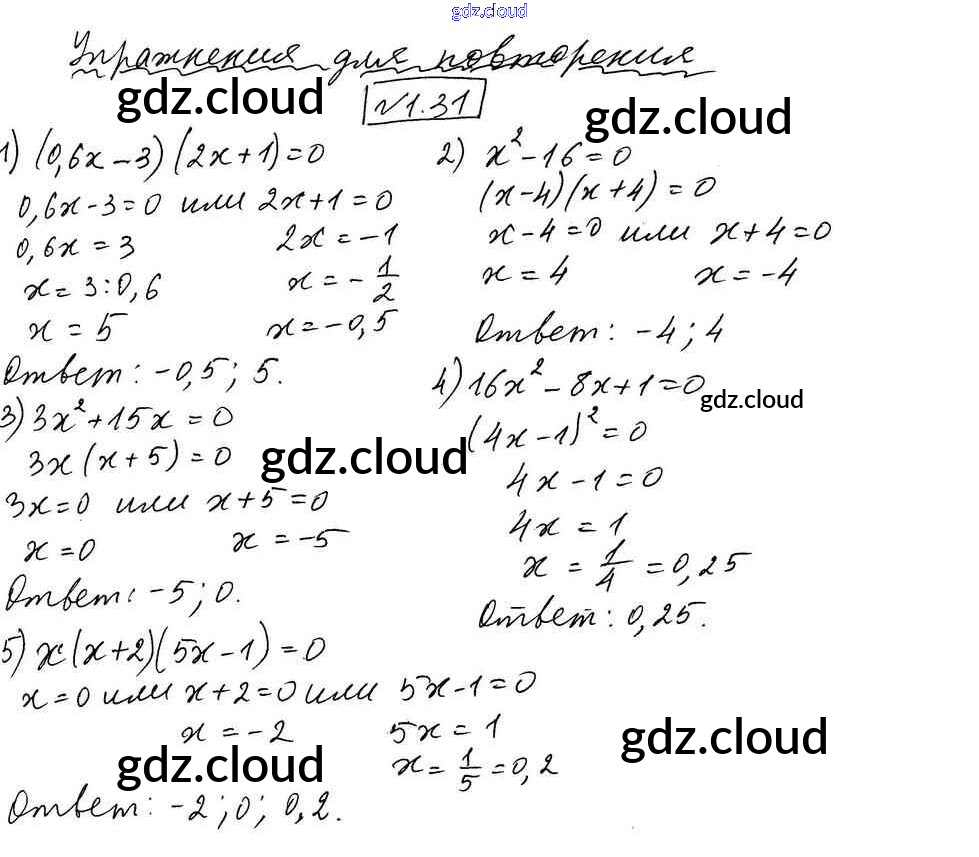 gdz.cloud
Упражнения для повторения
gdz.cloud
№1.31
gdz.cloud
1) (0,6x-3)(2x+1)=0
0,6x-3=0 или 2x+1=0
0,6x=3 2x=-1
x=3:0,6 x=-1/2
x=5 x=-0,5
Ответ: -0,5; 5.
2) x²-16=0
(x-4)(x+4)=0
x-4=0 или x+4=0
x=4 x=-4
Ответ: -4; 4
3) 3x²+15x=0
3x(x+5)=0
gdz.cloud
3x=0 или x+5=0
x=0 x=-5
Ответ: -5; 0.
4) 16x²-8x+1=0
gdz.cloud
(4x-1)²=0
4x-1=0
4x=1
x=1/4=0,25
Ответ: 0,25.
5) x(x+2)(5x-1)=0
x=0 или x+2=0 или 5x-1=0
x=-2 5x=1
x=1/5=0,2
gdz.cloud
gdz.cloud
Ответ: -2; 0; 0,2.